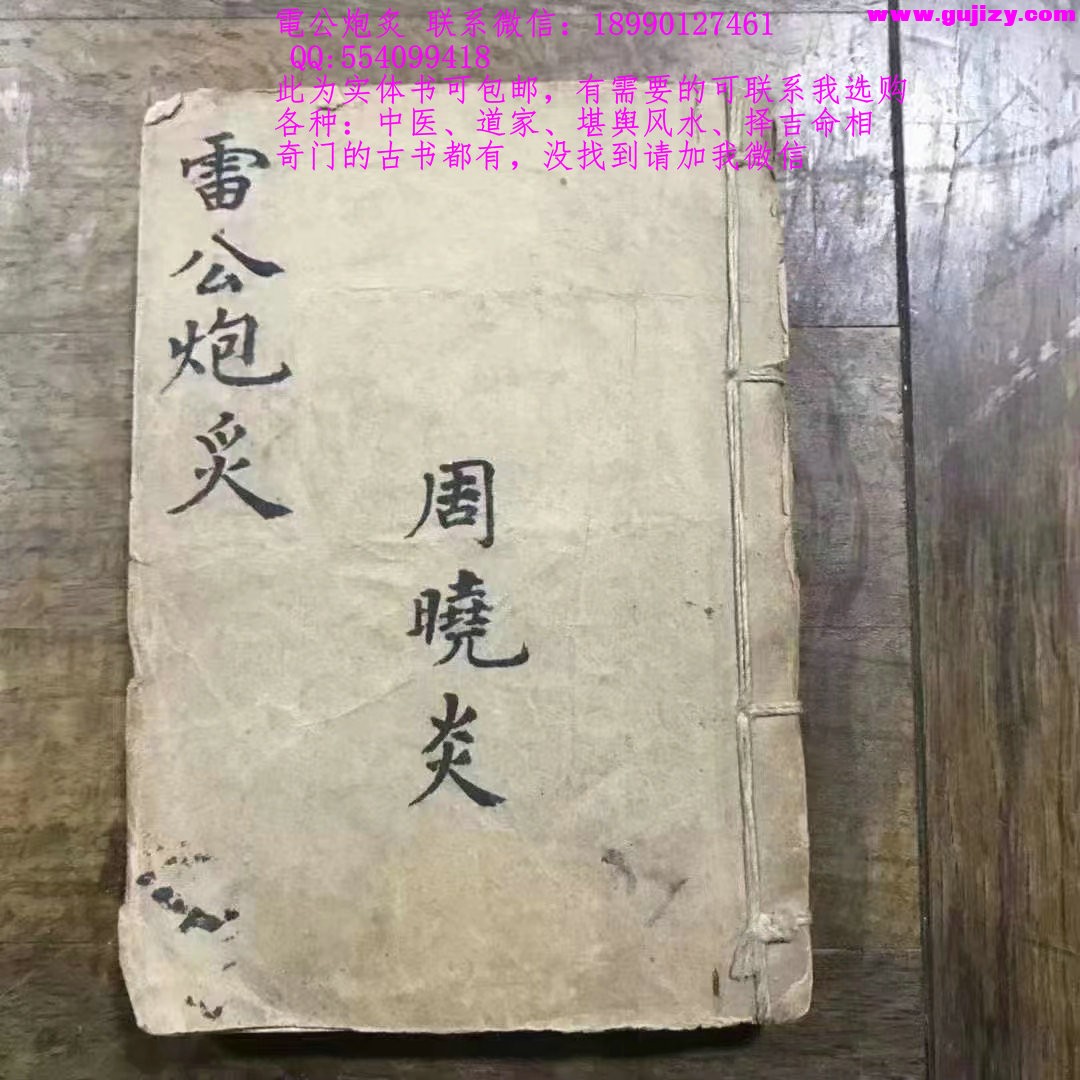 www.gujizy.com
電公炮炙 联系微信：18990127461
QQ:554099418
此为实体书可包邮，有需要的可联系我选购
各种：中医、道家、堪舆风水、择吉命相
奇门的古书都有，没找到请加我微信
雷公炮炙
周曉炎